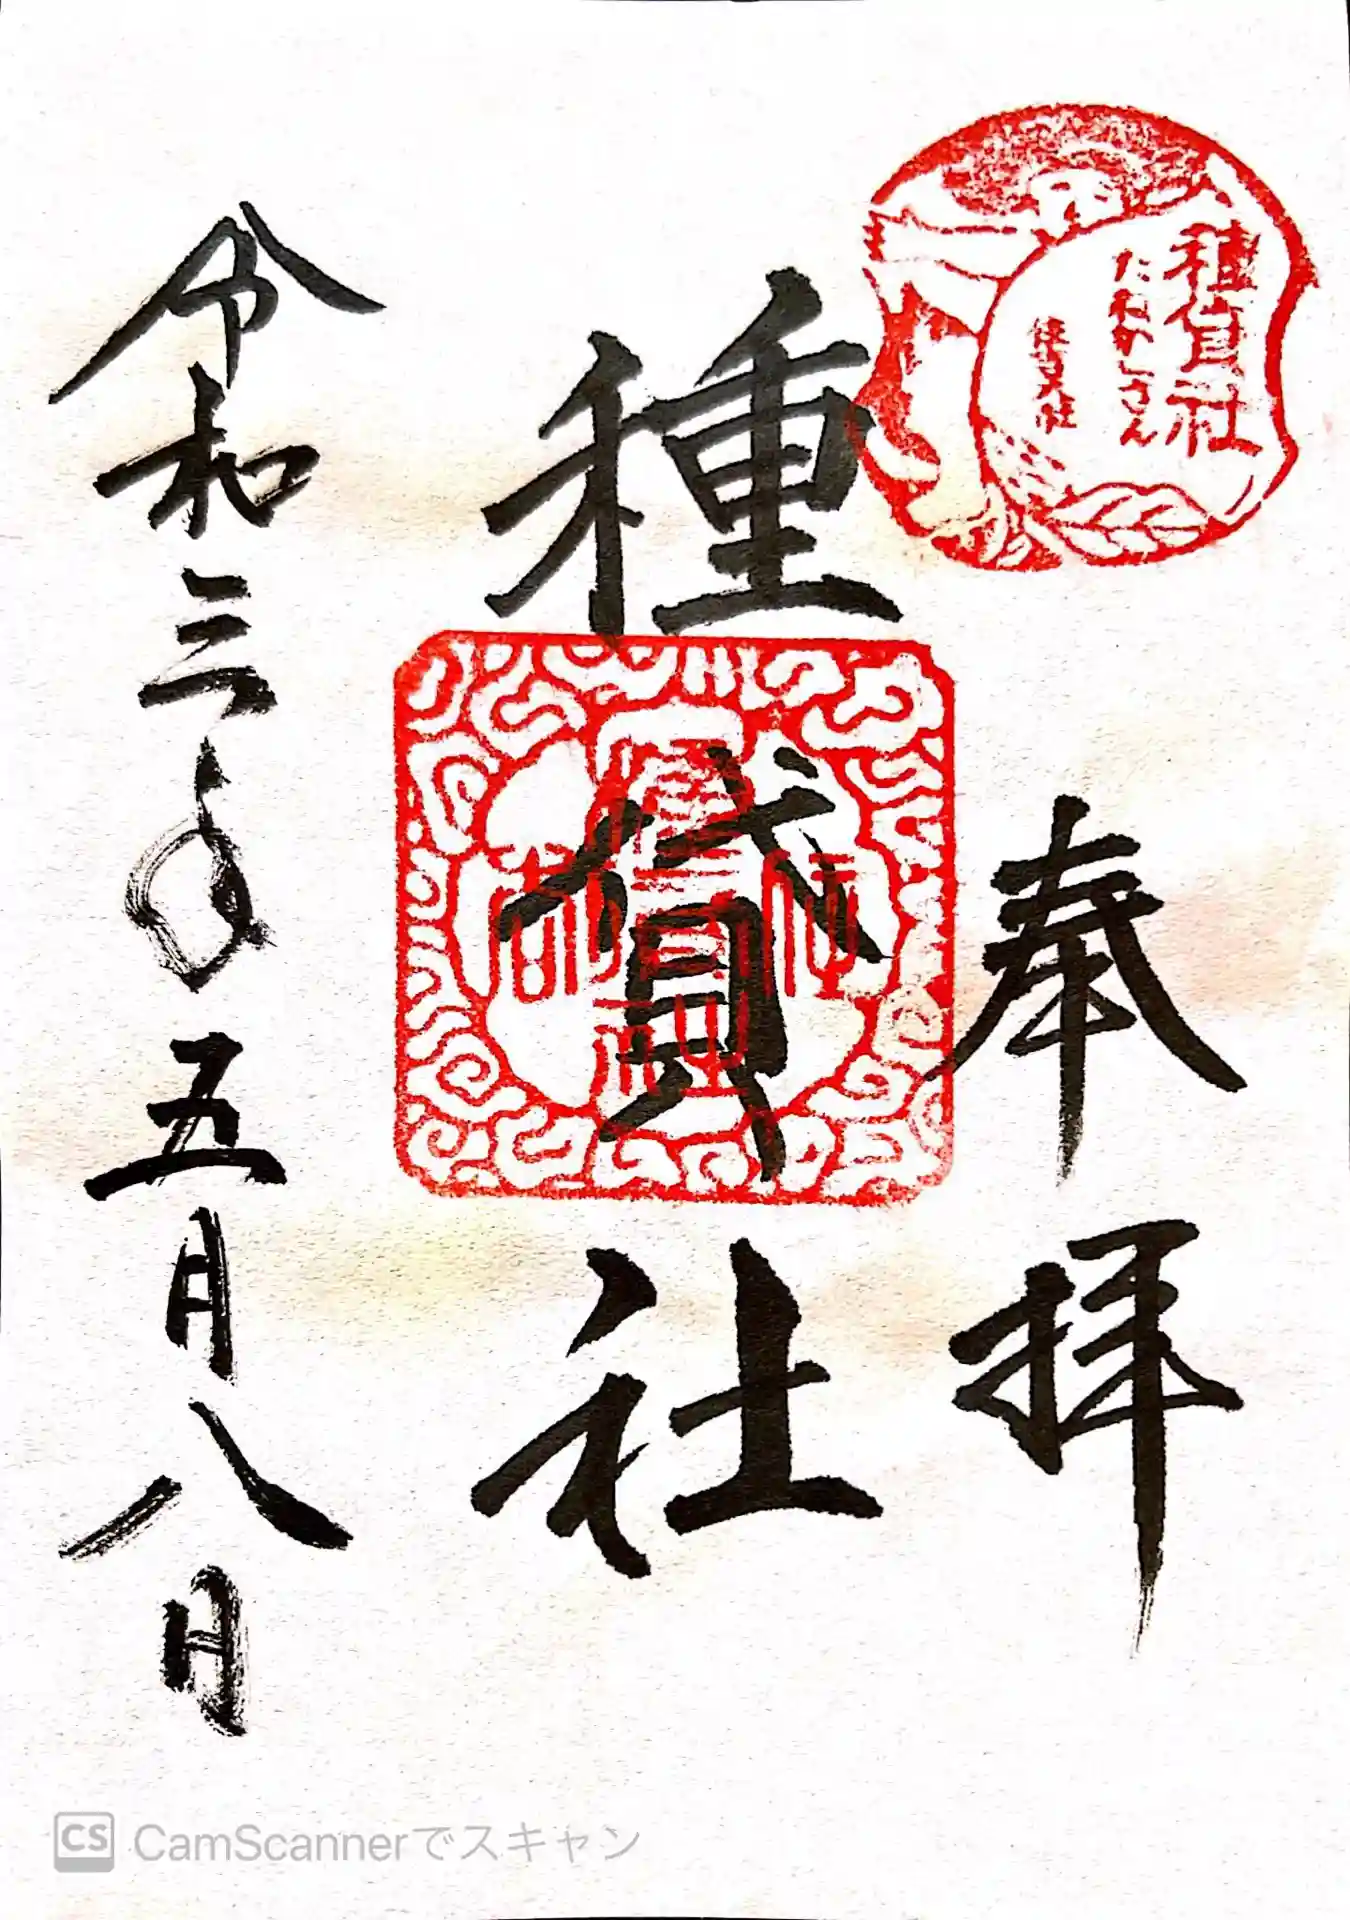 種貸社
たねかしさん
住吉大社
奉拝
種貸社
令和三年五月八日
CamScannerでスキャン